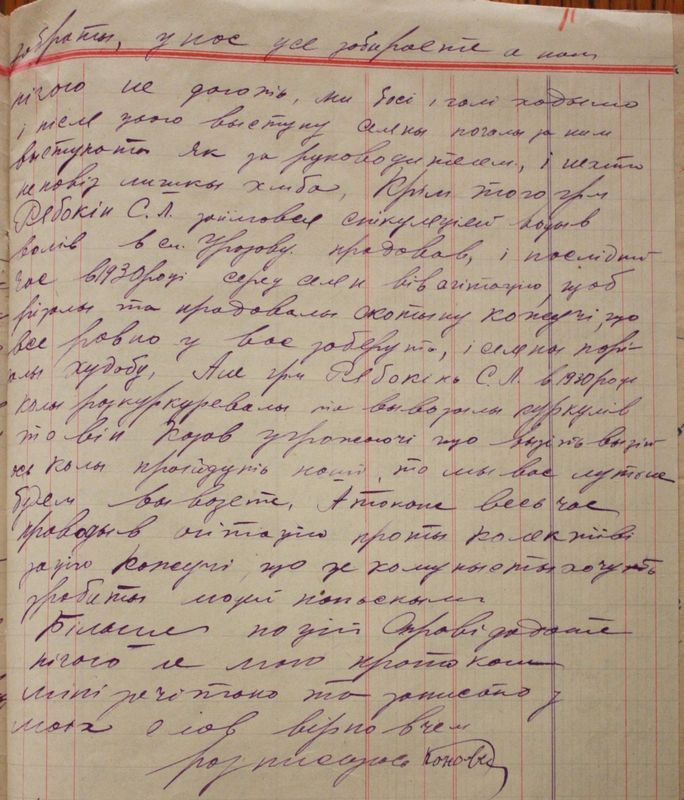 забраты, у нас усе забираете а нам
нічого не дають, ми босі і голі ходымо
і після цього выступу селяны почалы за ним
выступаты як за руководителем, і нехто
не повіз лишкы хліба, Крім того гр.
Рябокінь С.Л. займався спікуляцией водыв
волів в сл. Уразову продовав, і послідній
час в 1930 році серед селян вів агітацию, щоб
різалы та продавалы скотыну кажучі, що
все равно у вас заберуть, і селяны порі-
залы худобу, Але гр. Рябокінь С.Л. в 1930 році
колы розкуркурювалы та вывозылы куркулів
то він казав угрожаючі що везіть везіть
ось колы прийдуть наші, то мы вас лутьше
будем вывозеты, А також весь час
проводыв агітацию проты колективі
зацию кажучі, що це комуністы хочуть
зробыты людей панськими
Більше по цій справі додаты
нічого не можу протокол
мині речітано та записано з
моєх слов вірно в чем
росписуюсь